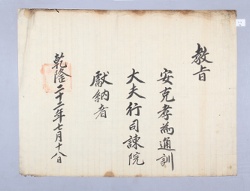 教旨
安克孝為通訓
大夫行司諫院
獻納者
乾隆二十二年七月十八日